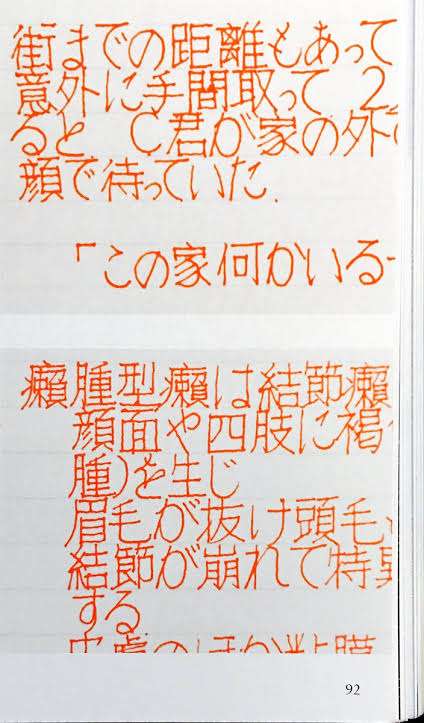 街までの距離もあって
意外に手間取って 2
ると C君が家の外
顔で待っていた.
「この家何かいる
癩腫型癩は結節癩
顔面や四肢に褐
腫)を生じ
眉毛が抜け頭毛
結節が崩れて特異
する
皮膚のほか粘膜
92